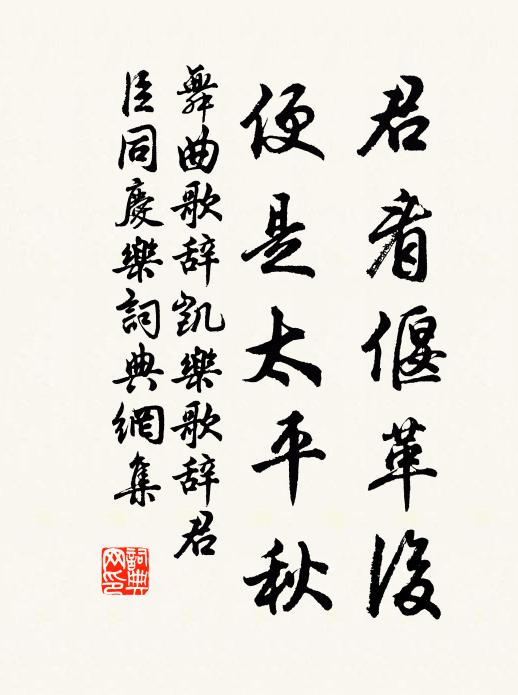 君看偃革後
便是太平秋
舞曲歌辭凱樂歌辭君
臣同慶樂詞典網集
詞典網印